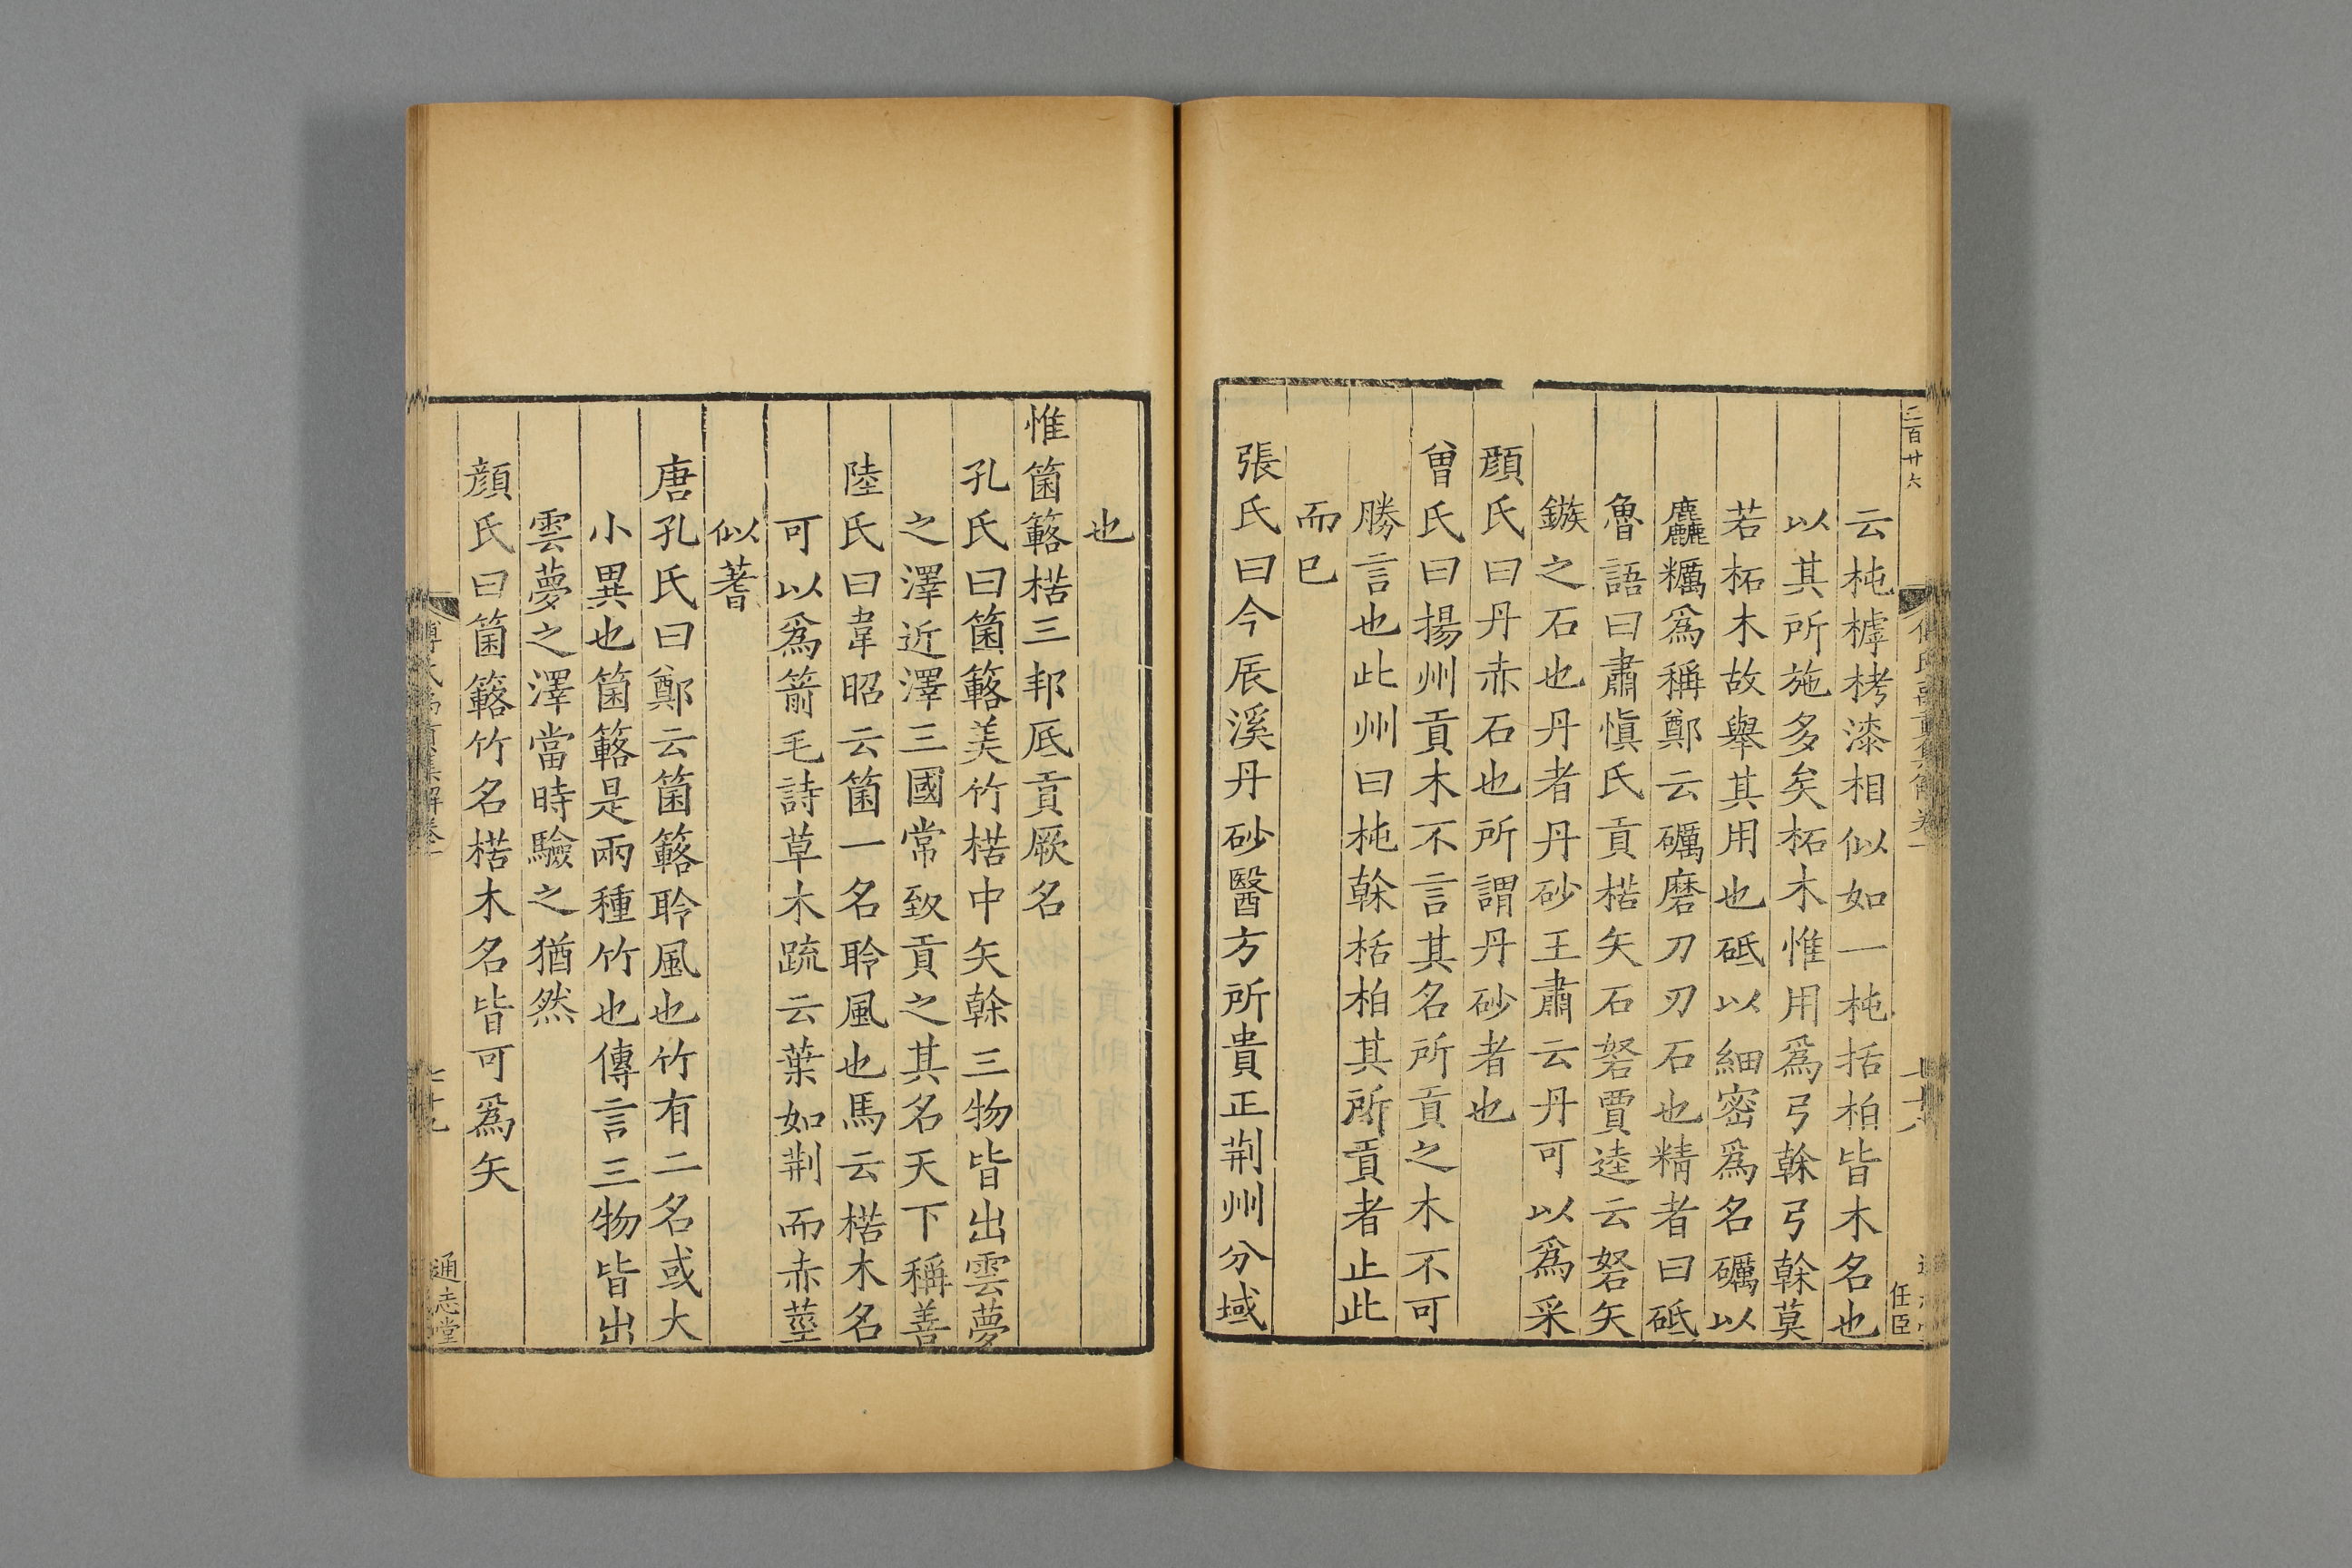 二百廿六
云杶櫄栲漆相似如一杶栝柏皆木名也
以其所施多矣柘木惟用爲弓榦弓榦莫
若柘木故舉其用也砥以細密爲名礪以
麤糲爲稱鄭云礪磨刀刃石也精者曰砥
魯語曰肅愼氏貢楛矢石砮賈逵云砮矢
鏃之石也丹者丹砂王肅云丹可以爲采
顔氏曰丹赤石也所謂丹砂者也
曾氏曰揚州貢木不言其名所貢之木不可
勝言也此州曰杶榦栝柏其所貢者止此
而已
張氏曰今辰溪丹砂醫方所貴正荆州分域
任臣
也
惟箘簵楛三邦厎貢厥名
孔氏曰箘簵美竹楛中矢榦三物皆出雲夢
之澤近澤三國常致貢之其名天下稱善
陸氏曰韋昭云箘一名聆風也馬云楛木名
可以爲箭毛詩草木疏云葉如荆而赤莖
似蓍
唐孔氏曰鄭云箘簵聆風也竹有二名或大
小異也箘簵是兩種竹也傳言三物皆出
雲夢之澤當時驗之猶然
顔氏曰箘簵竹名楛木名皆可爲矢
通志堂